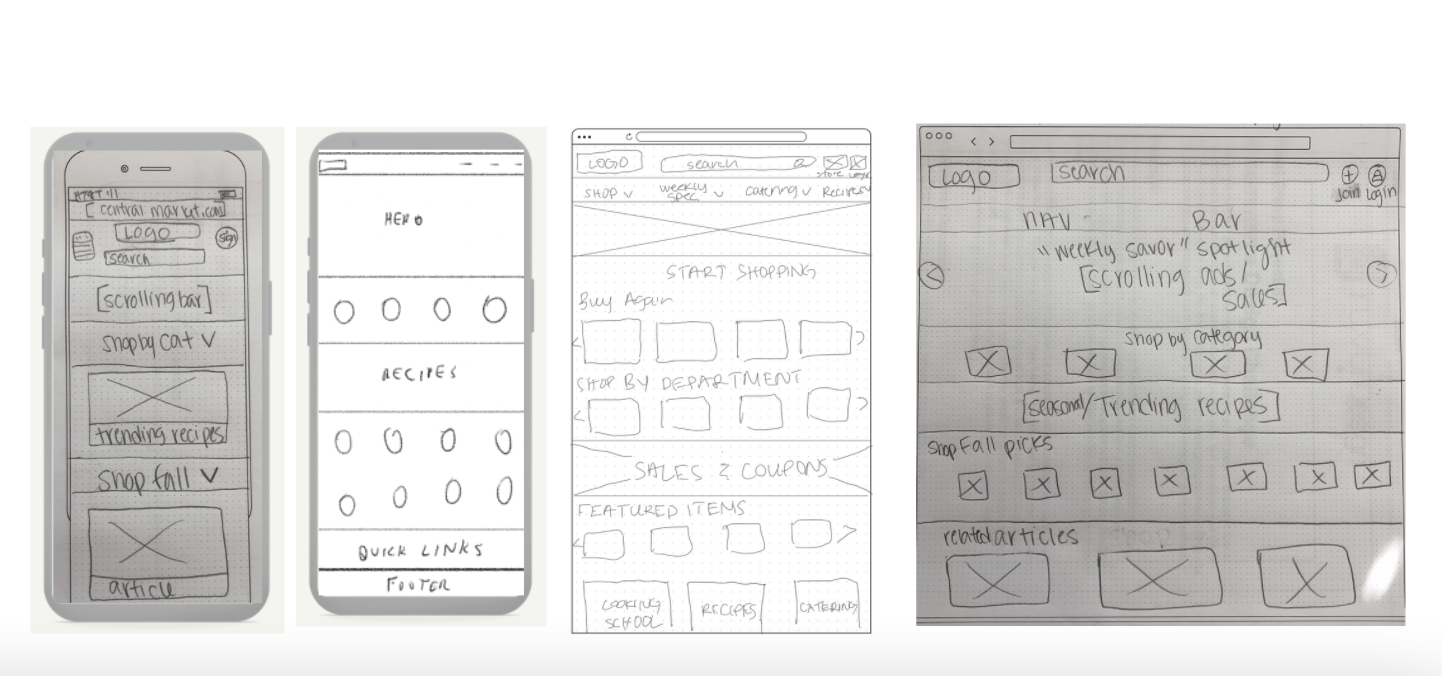 AT&T
[central market.com]
LOGO
sign
search
[scrolling bar]
shop by cat
trending recipes
shop fall
article
HERO
RECIPES
QUICK LINKS
FOOTER
LOGO search store login
SHOP weekly spec catering Recipes
START SHOPPING
Buy Again
SHOP BY DEPARTMENT
SALES & COUPONS
FEATURED ITEMS
COOKING SCHOOL
RECIPES
CATERING
Logo search
Join Log In
NAV Bar
"weekly savor" spotlight
[scrolling ads/
sales]
shop by category
[seasonal/Trending recipes]
Shop Fall picks
related articles